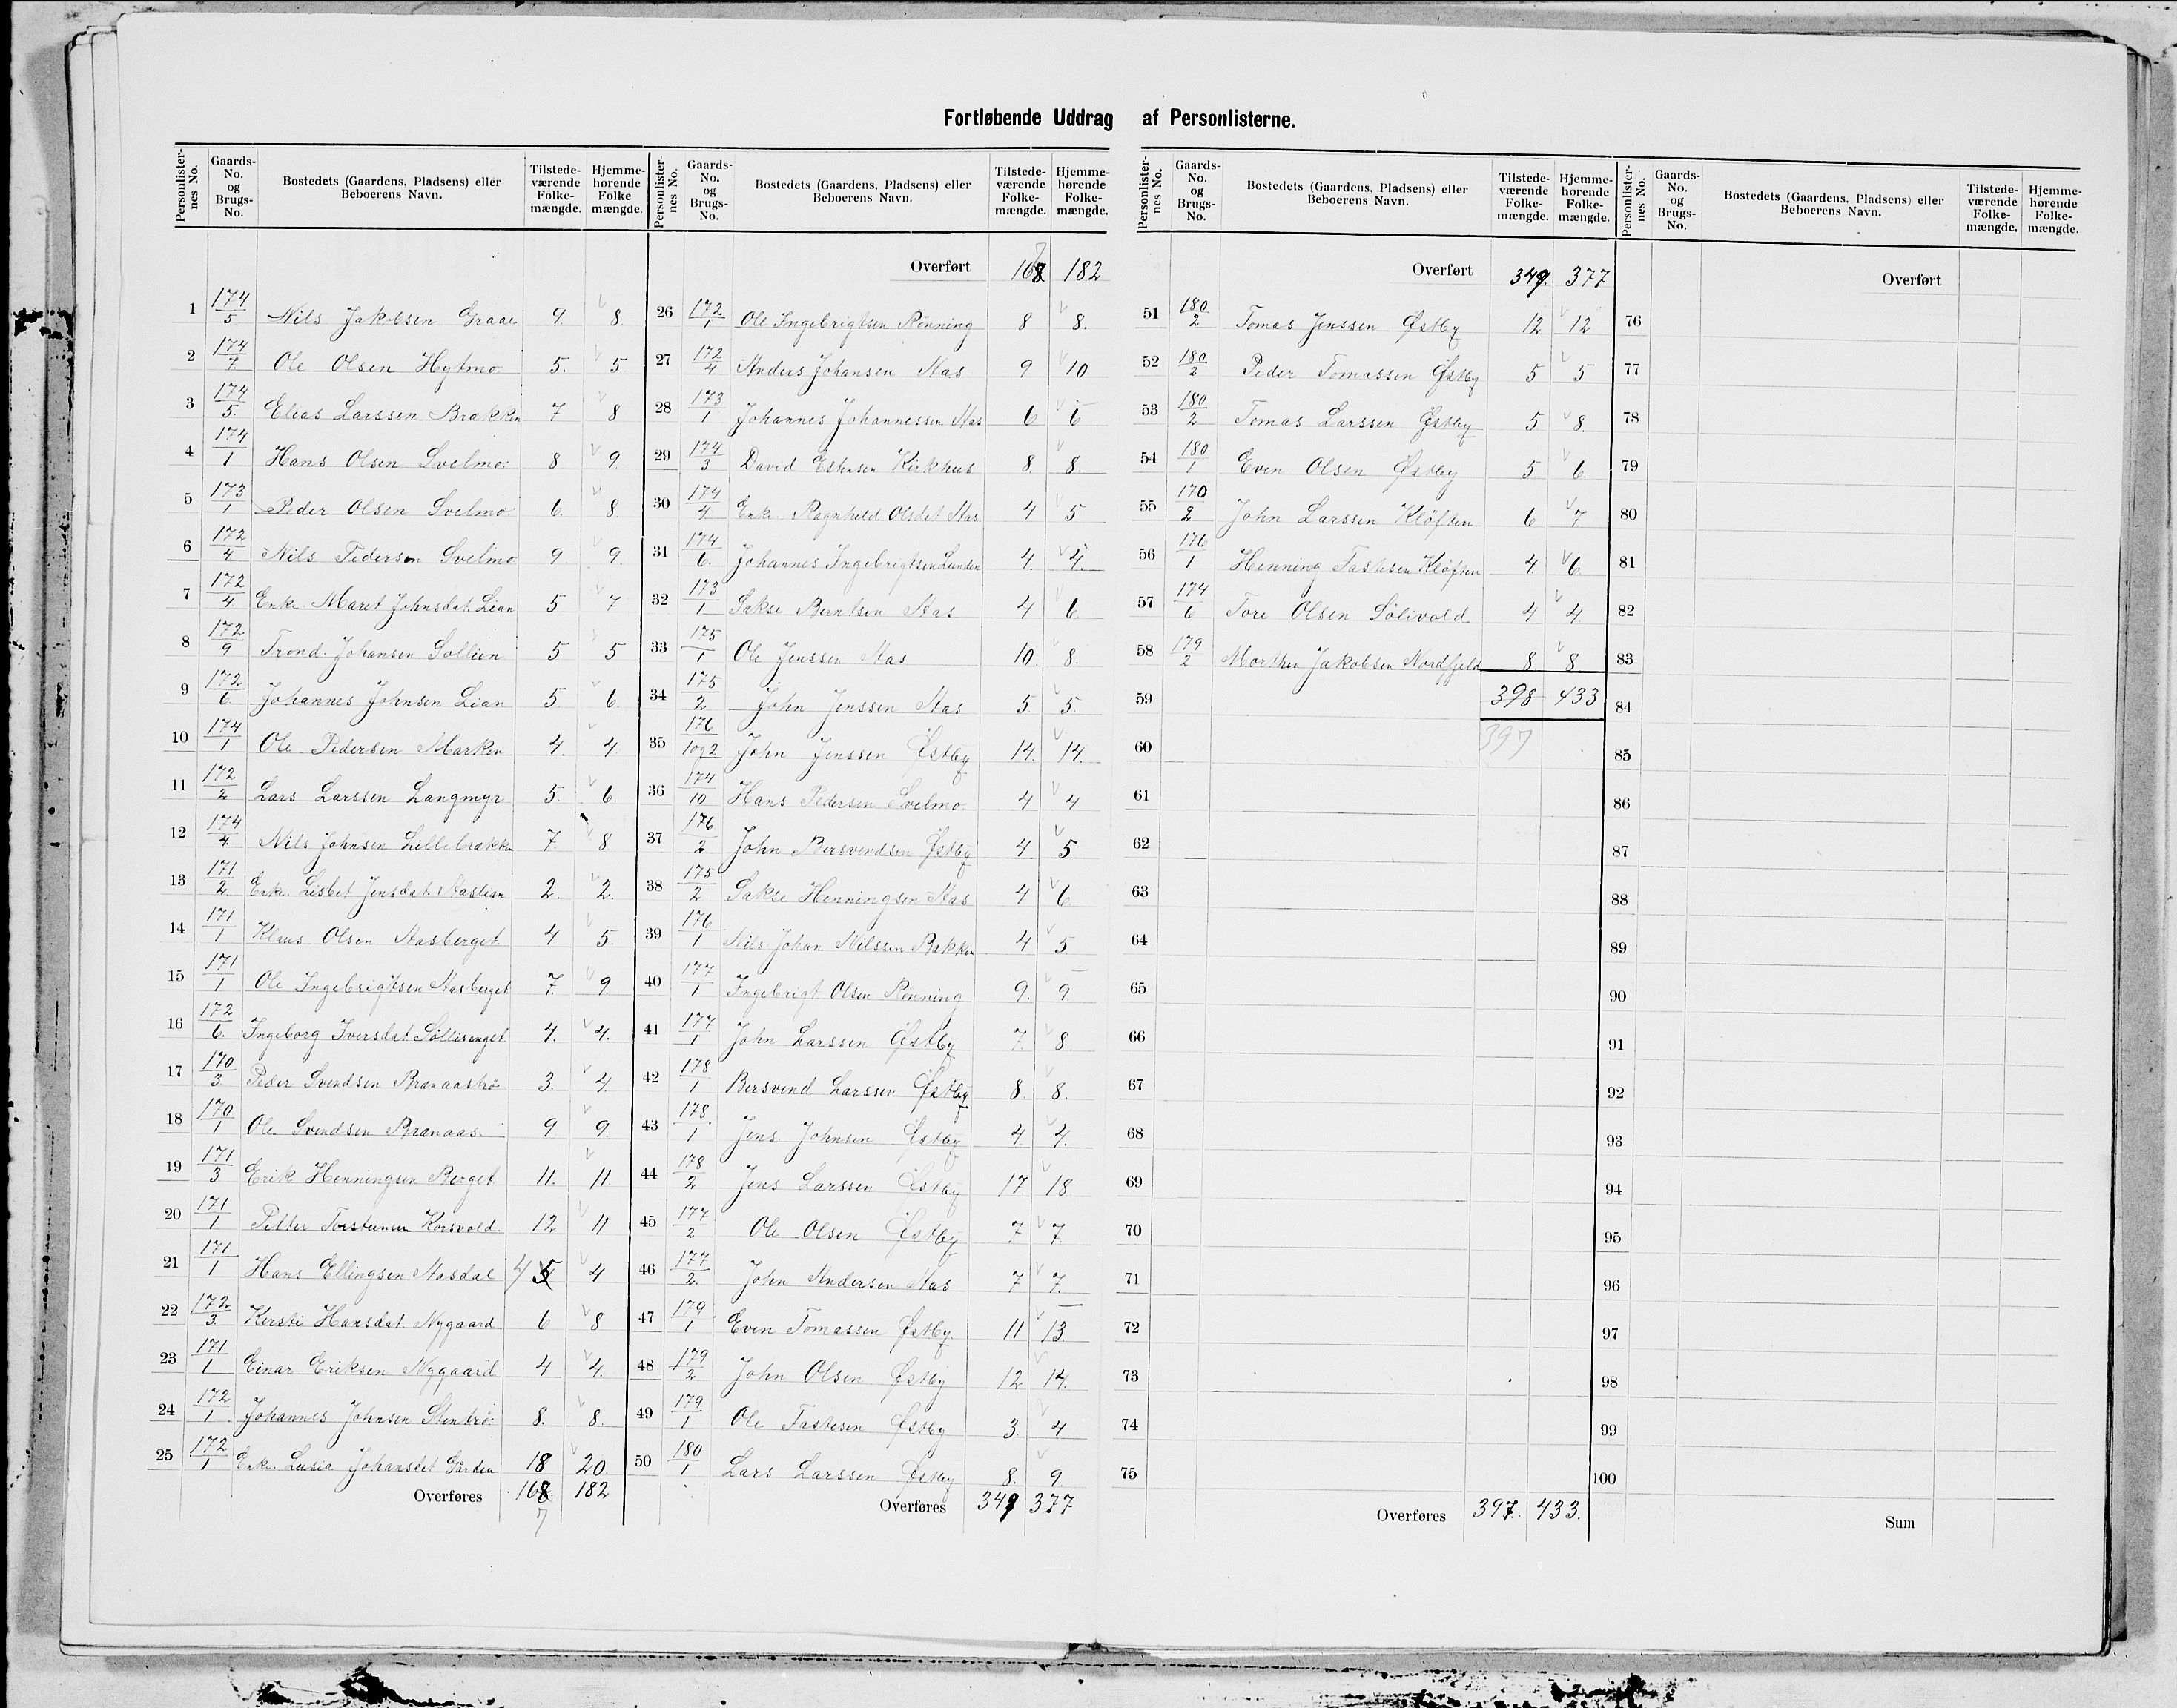 Fortløbende Uddrag af Personlisterne.
Personlister-nes No. Gaards-No. og Brugs-No. Bostedets (Gaardens, Pladsens) eller Beboerens Navn. Tilstede-værende Folke-mængde. Hjemme-hørende Folke mængde.
1 174/5 Nils Jakobsen Graae 9. 8.
2 174/7 Ole Olsen Hytmo 5. 5
3 174/5. Elias Larssen Brækken 7 8
4 174/1 Hans Olsen Svelmo 8 9.
5 173/1 Peder Olsen Svelmo 6. 8
6 172/4 Nils Pedersen Svelmo 9 9.
7 172/4 Enke Maret Johnsdat. Lian 5 7
8 172/9 Trond Johansen Sollien 5 5
9 172/6 Johannes Johnsen Lian 5. 6.
10 174/1 Ole Pedersen Marken 4 4.
11 172/2 Lars Larssen Langmyr 5. 6.
12 174/4. Nils Johnsen Lillebrækken 7 8
13 171/2. Enke Lisbet Jensdat. Aaslian 2. 2.
14 171/1 Klaus Olsen Aasberget 4 5
15 171/1 Ole Ingebrigtsen Aasberget 7. 9.
16 172/6. Ingeborg Iversdat. Søllisenget 4. 4.
17 170/3. Peder Svendsen Brænaastrø 3. 4.
18 170/1 Ole Svendsen Brænaas 9 9.
19 171/3. Erik Henningsen Berget 11. 11.
20 171/1 Petter Torsteinsen Korsvold. 12 11
21 171/1 Hans Ellingsen Aasdal 4 5 4
22 172/3. Kersti Hansdat. Nygaard 6 8
23 171/1 Einar Eriksen Nygaard 4 4.
24 172/1. Johannes Johnsen Stentrø 8. 8.
25 172/1 Enke. Lusia Johansdt Gården 18 20.
Overføres 168 182
7
Personlister-nes No. Gaards-No. og Brugs-No. Bostedets (Gaardens, Pladsens) eller Beboerens Navn. Tilstede-værende Folke-mængde. Hjemme-hørende Folke-mængde.
7
Overført 168 182
26 172/1 Ole Ingebrigtsen Rønning 8 8.
27 172/4 Anders Johansen Aas 9 10
28 173/1 Johannes Johannessen Aas 6 6
29 174/3 David Estensen Kirkhus 8. 8.
30 174/4 Enke Ragnhild Olsdat Aas 4 5
31 174/6. Johannes Ingebrigtsen Lunden 4. 4.
32 173/1 Sakse Berntsen Aas 4 6
33 175/1 Ole Jenssen Aas 10. 8.
34 175/2 John Jenssen Aas 5 5.
35 176/1og2 John Jenssen Østby 14. 14.
36 174/10 Hans Pedersen Svelmo 4 4
37 176/2 John Bersvendsen Østby 4 5
38 175/2 Sakse Henningsen Aas 4 6.
39 176/1 Nils Johan Nilssen Bakken 4 5
40 177/1 Ingebrigt Olsen Rønning 9. 9
41 177/1 John Larssen Østby 7. 8
42 178/1 Bersvend Larssen Østby 8. 8.
43 178/1 Jens Johnsen Østby 4 4.
44 178/2 Jens Larssen Østby 17 18
45 177/2 Ole Olsen Østby 7 7.
46 177/2. John Andersen Aas 7 7.
47 179/1 Even Tomassen Østby. 11 13.
48 179/2 John Olsen Østby 12 14.
49 179/1 Ole Tastesen Østby 3. 4
50 180/1 Lars Larssen Østby 8. 9.
Overføres 349 377
Personlister-nes No. Gaards-No. og Brugs-No. Bostedets (Gaardens, Pladsens) eller Beboerens Navn. Tilstede-værende Folke-mængde. Hjemme-hørende Folke-mængde.
Overført 349. 377
51 180/2 Tomas Jenssen Østby 12 12
52 180/2 Peder Tomassen Østby 5 5
53 180/2 Tomas Larssen Østby 5 8.
54 180/1 Even Olsen Østby 5 6.
55 170/2 John Larssen Kløften 6 7
56 176/1 Henning Tastesen Kløften 4 6
57 174/6 Tore Olsen Sølivold 4 4
58 179/2 Morthen Jakobsen Nordfjeld 8 8
59 398 433
60 397
61
62
63
64
65
66
67
68
69
70
71
72
73
74
75
Overføres 397. 433.
Personlister-nes No. Gaards-No. og Brugs-No. Bostedets (Gaardens, Pladsens) eller Beboerens Navn. Tilstede-værende Folke-mængde. Hjemme-hørende Folke-mængde.
Overført
76
77
78
79
80
81
82
83
84
85
86
87
88
89
90
91
92
93
94
95
96
97
98
99
100
Sum